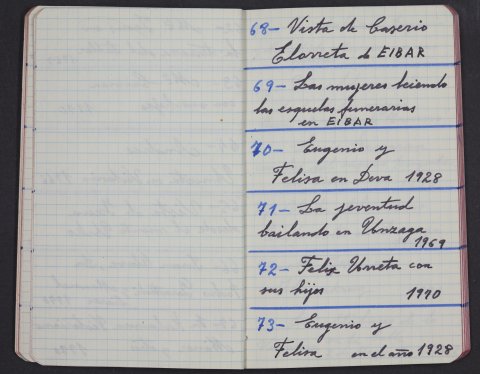 68- Vista de Caserio
Elorreta de EIBAR
69- Las mujeres leiendo
las esquelas funerarias
en EIBAR
70- Eugenio y
Felisa en Deva 1928
71- La jeventud
bailando en Unzaga
1969
72- Felix Urreta con
sus hijos 1970
73- Eugenio y
Felisa en el año 1928